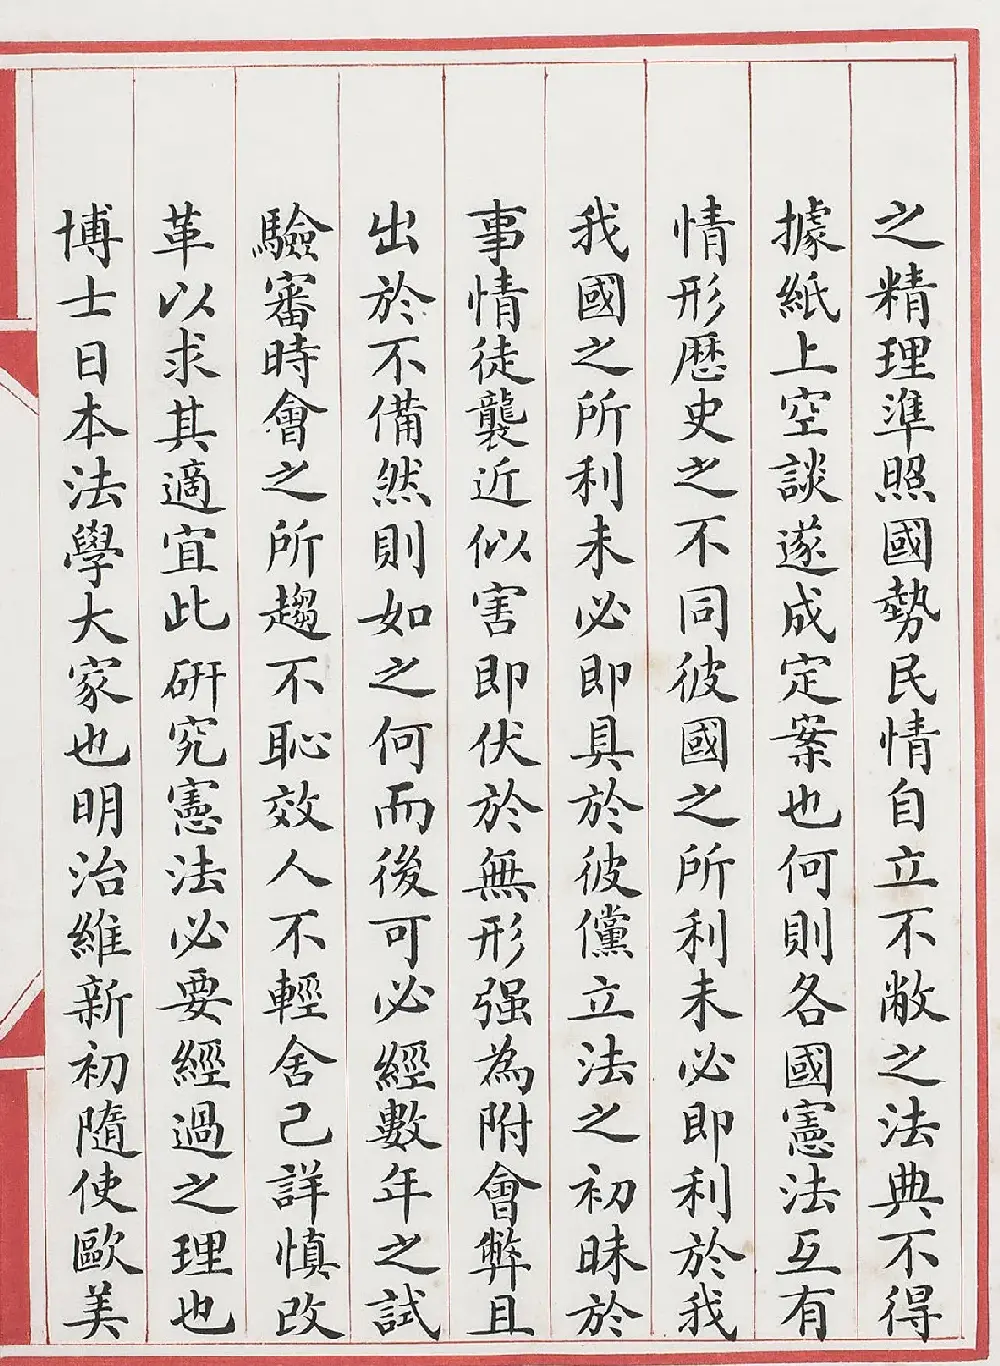 之精理準照國勢民情自立不敝之法典不得
據紙上空談遂成定案也何則各國憲法互有
情形歷史之不同彼國之所利未必即利於我
我國之所利未必即具於彼儻立法之初昧於
事情徒襲近似害即伏於無形强為附會弊且
出於不備然則如之何而後可必經數年之試
驗審時會之所趨不恥效人不輕舍己詳慎改
革以求其適宜此研究憲法必要經過之理也
博士日本法學大家也明治維新初隨使歐美